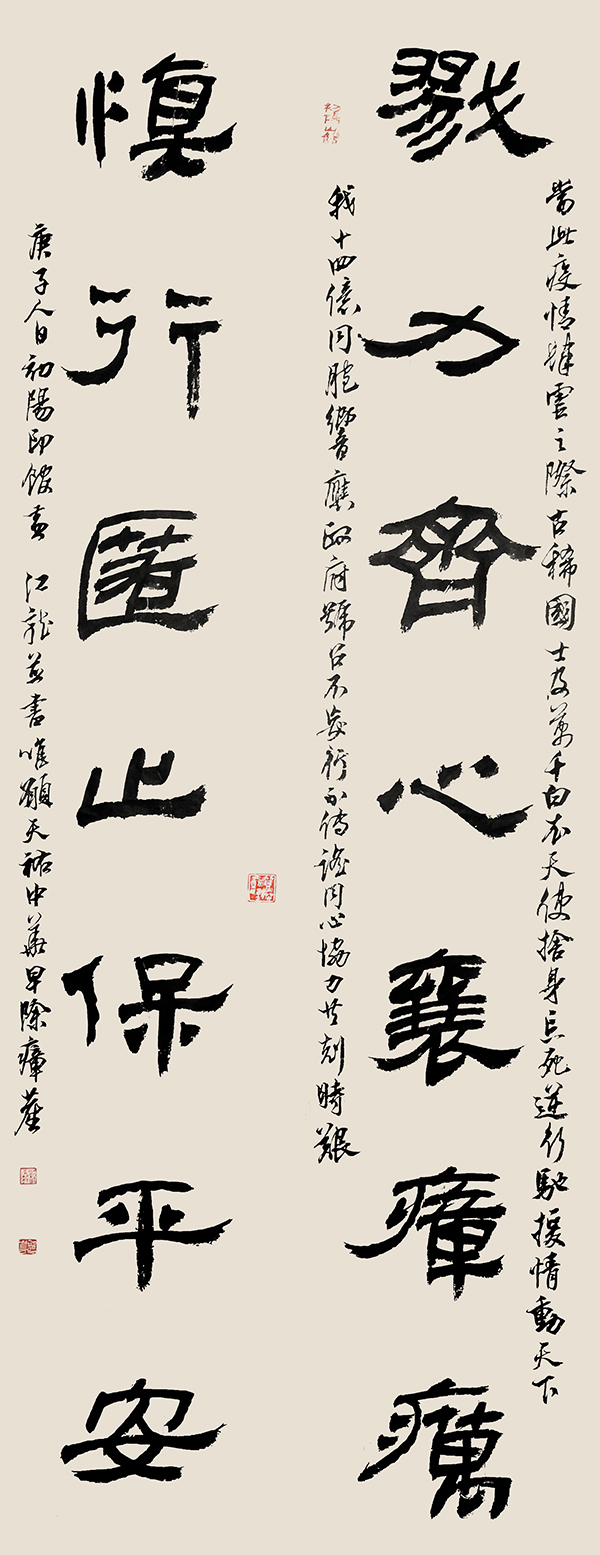 當此疫情肆虐之際古稀國士及萬千白衣天使捨身忘死逆行馳援情動天下
戮力齊心襄瘴癘
我十四億同胞響應政府號召不妄行不傳謠同心協力共剋時艱
慎行匿止保平安
庚子人日初陽印館 江龍並書唯願天祐中華早除瘴